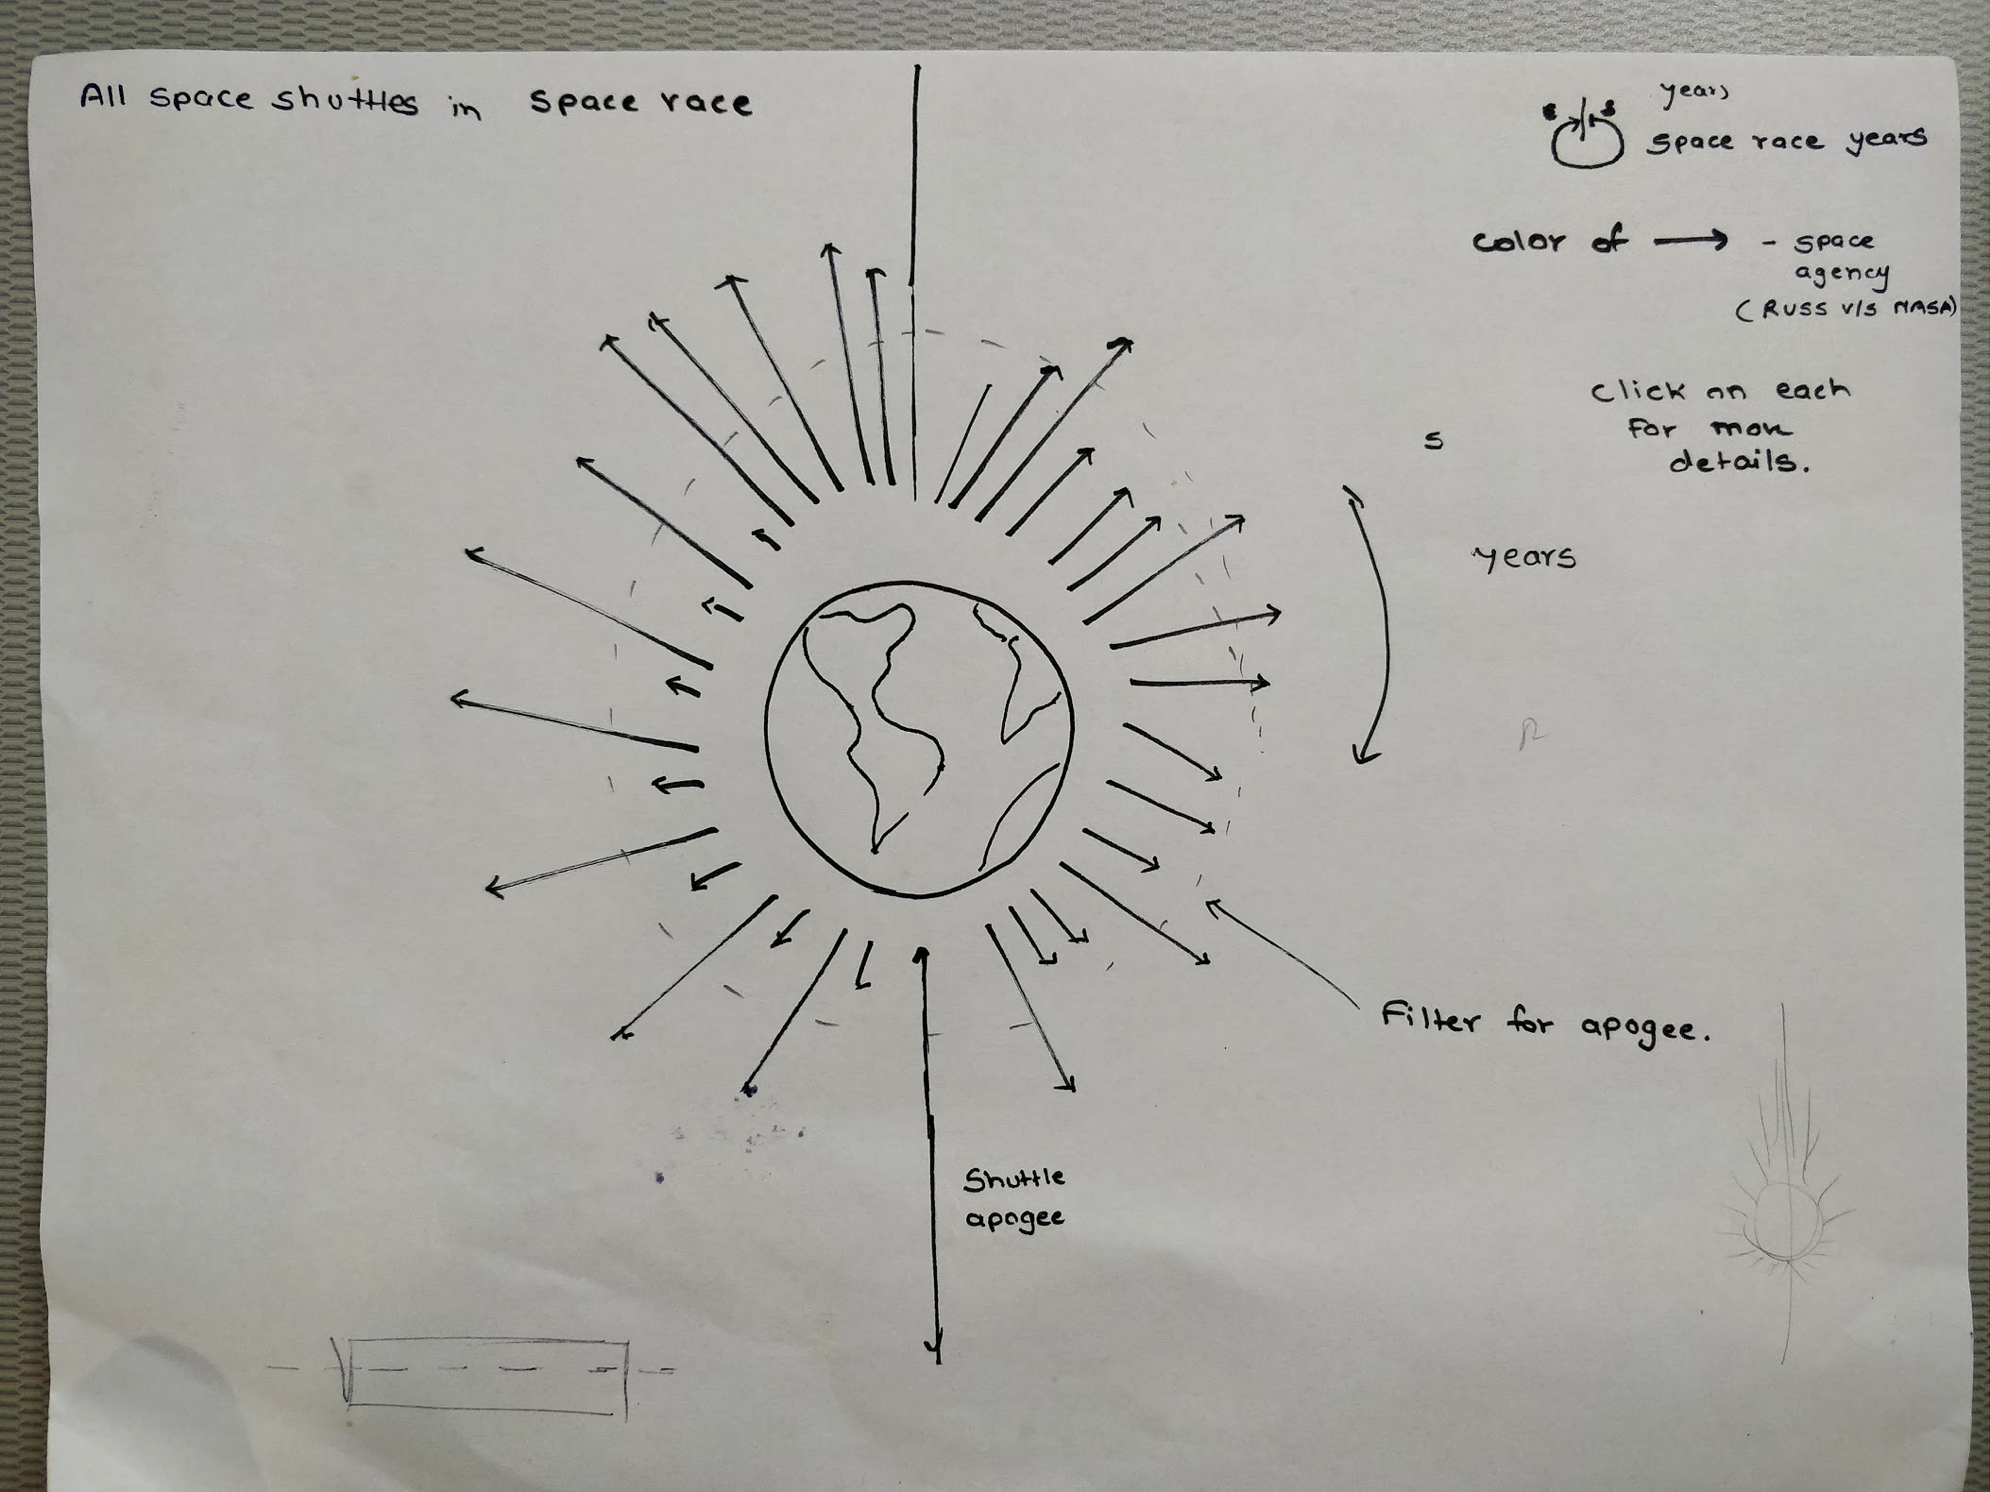 All space shuttles in space race
years
E S
space race years
color of → - space
agency
(RUSS v/s NASA)
Click on each
For more
details.
S
years
R
Filter for apogee.
Shuttle
apogee